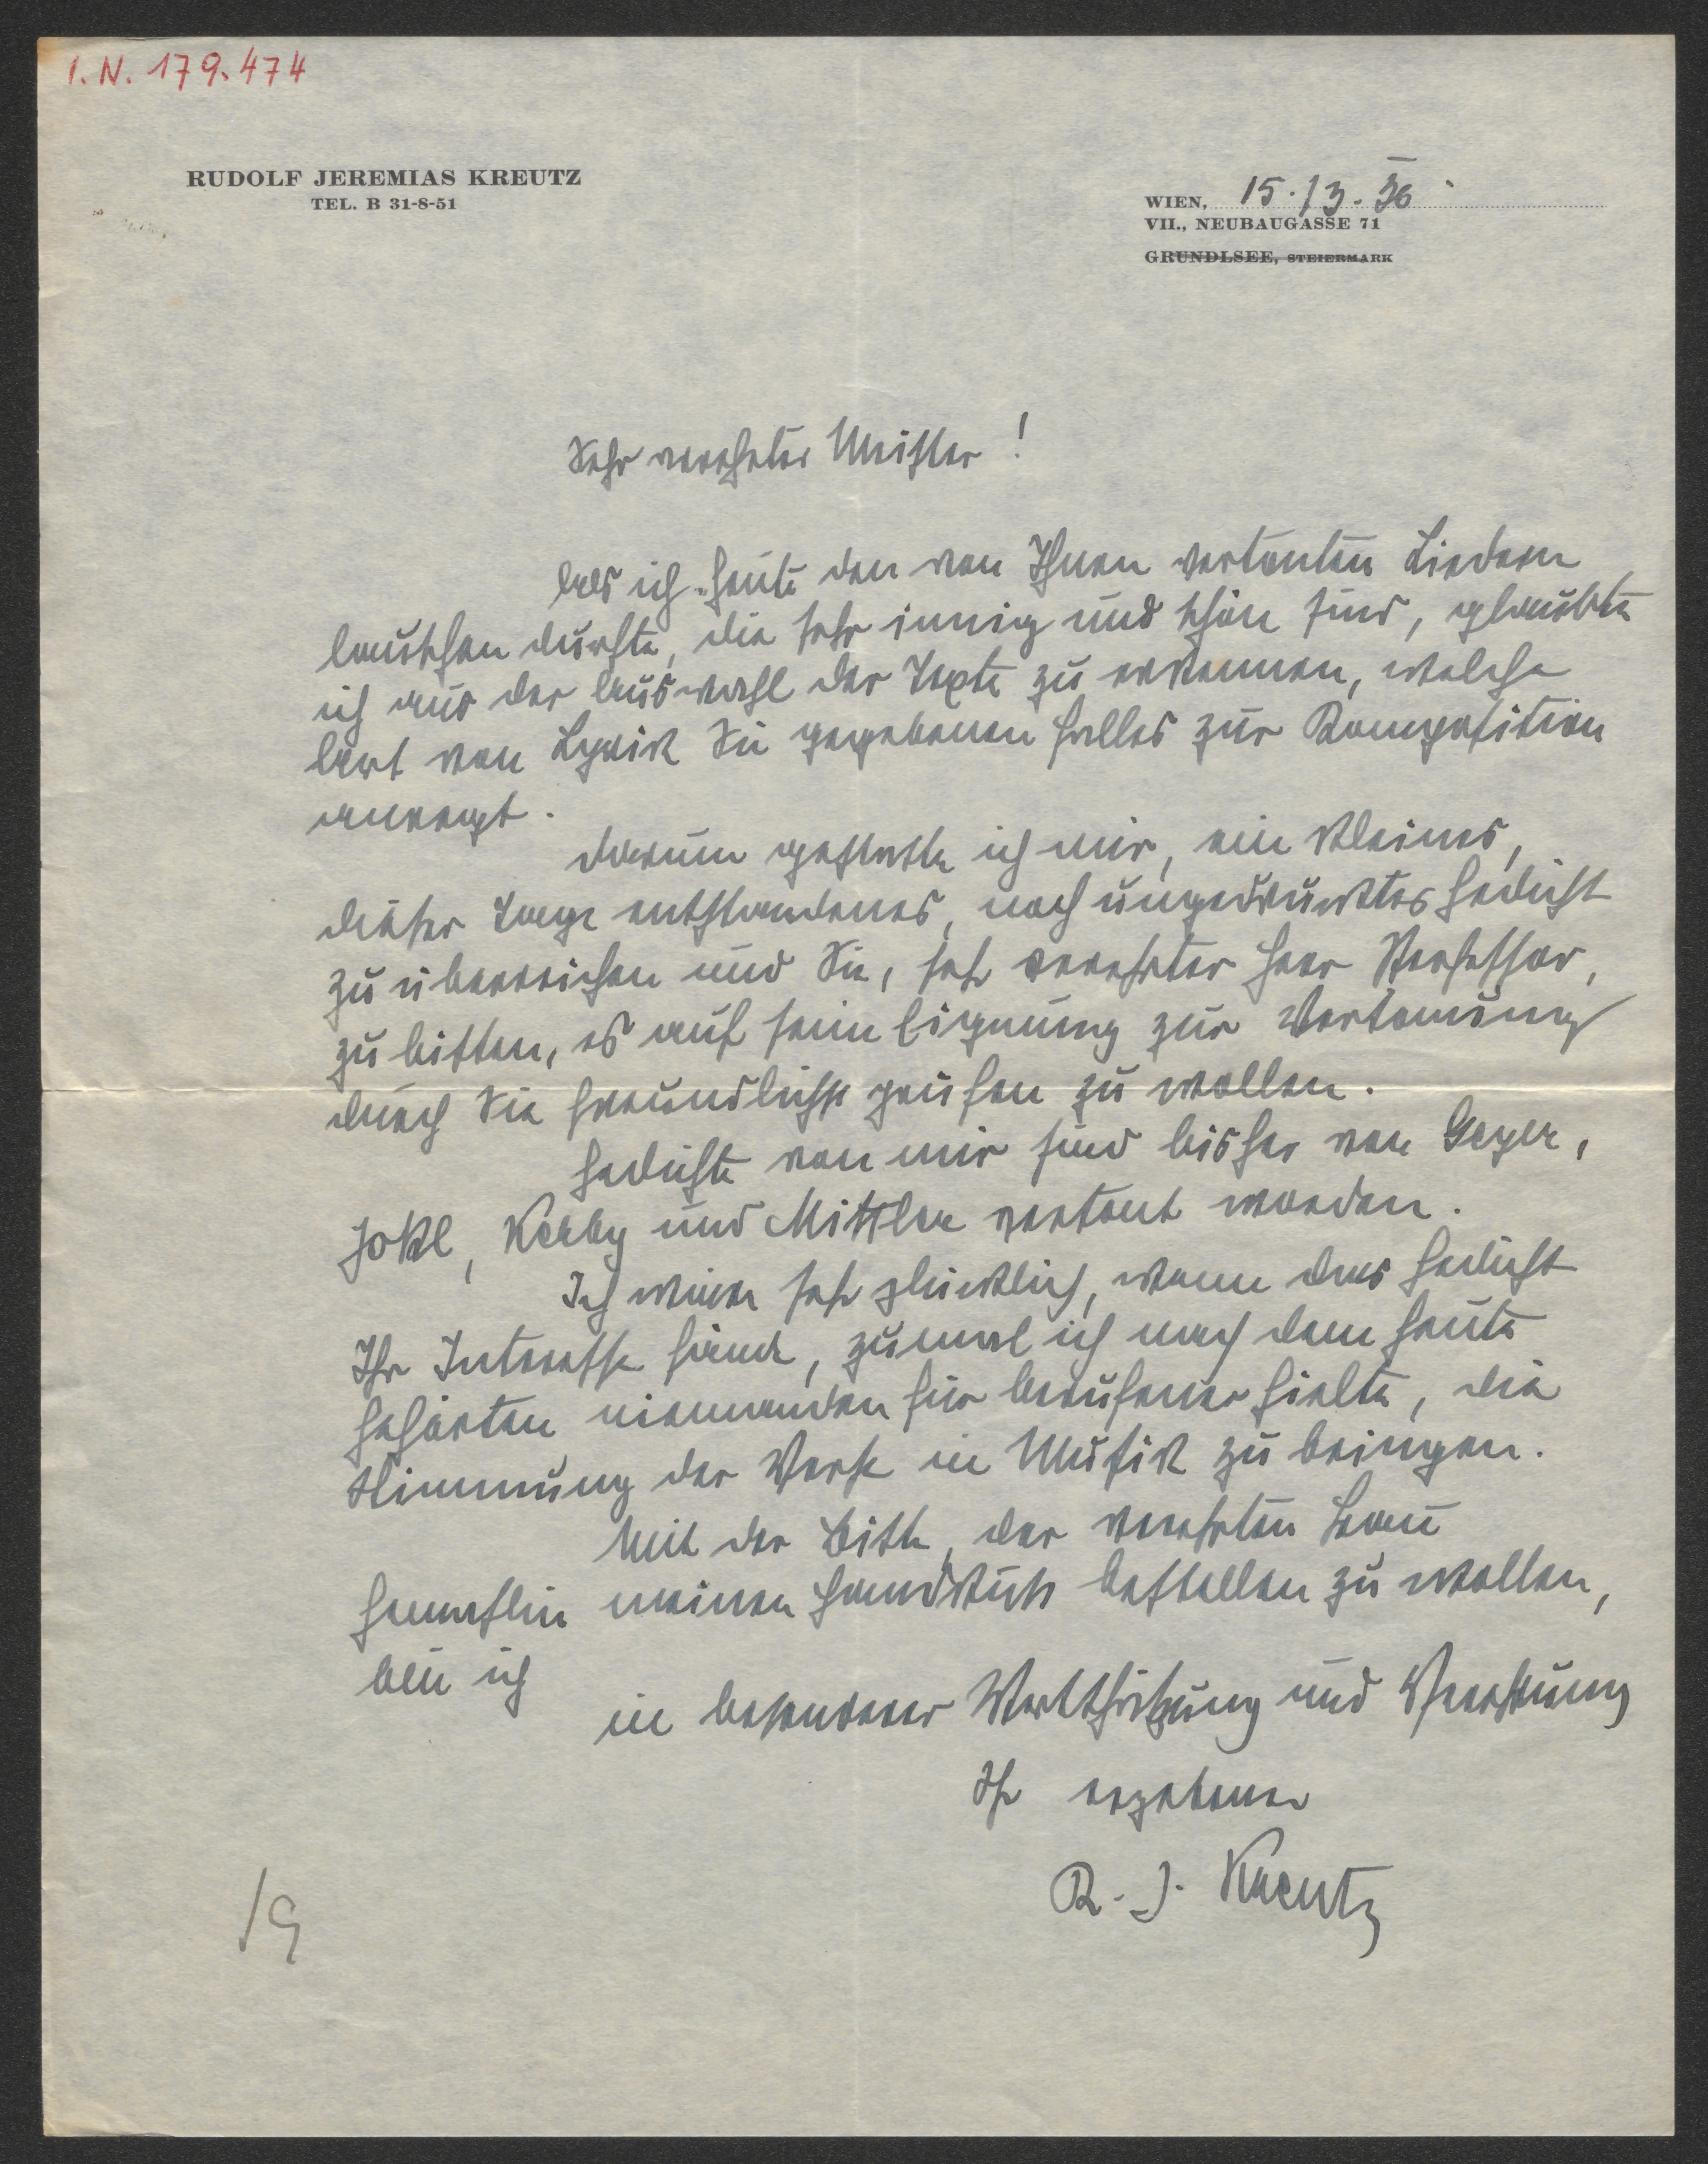 I. N. 179.474
RUDOLF JEREMIAS KREUTZ
TEL. B 31-8-51
WIEN, 15./3. 36
VII., NEUBAUGASSE 71
GRUNDLSEE, STEIERMARK
Sehr verehrter Meister!
Als ich heute den von Ihnen vertonten Liedern
lauschen durfte, die sehr innig und schön sind, glaubte
ich aus der Auswahl der Texte zu erkennen, welche
Art von Lyrik Sie gegebenen Falles zur Komposition
anregt.
Darum gestatte ich mir, ein kleines,
dieser Tage entstandenes, noch ungedrucktes Gedicht
zu überreichen und Sie, sehr verehrter Herr Professor,
zu bitten, es auf seine Eignung zur Vertonung
durch Sie freundlichst prüfen zu wollen.
Gedichte von mir sind bisher von Geyer,
Jokl, Kerby und Mittler vertont worden.
Ich wäre sehr glücklich, wenn das Gedicht
Ihr Interesse fände, zumal ich nach dem heute
Gehörten niemanden für berufener hielte, die
Stimmung der Verse in Musik zu bringen.
Mit der Bitte, der verehrten Frau
Gemahlin meinen Handkuß bestellen zu wollen,
bin ich
in besonderer Wertschätzung und Verehrung
Ihr ergebener
R. J. Kreutz
19